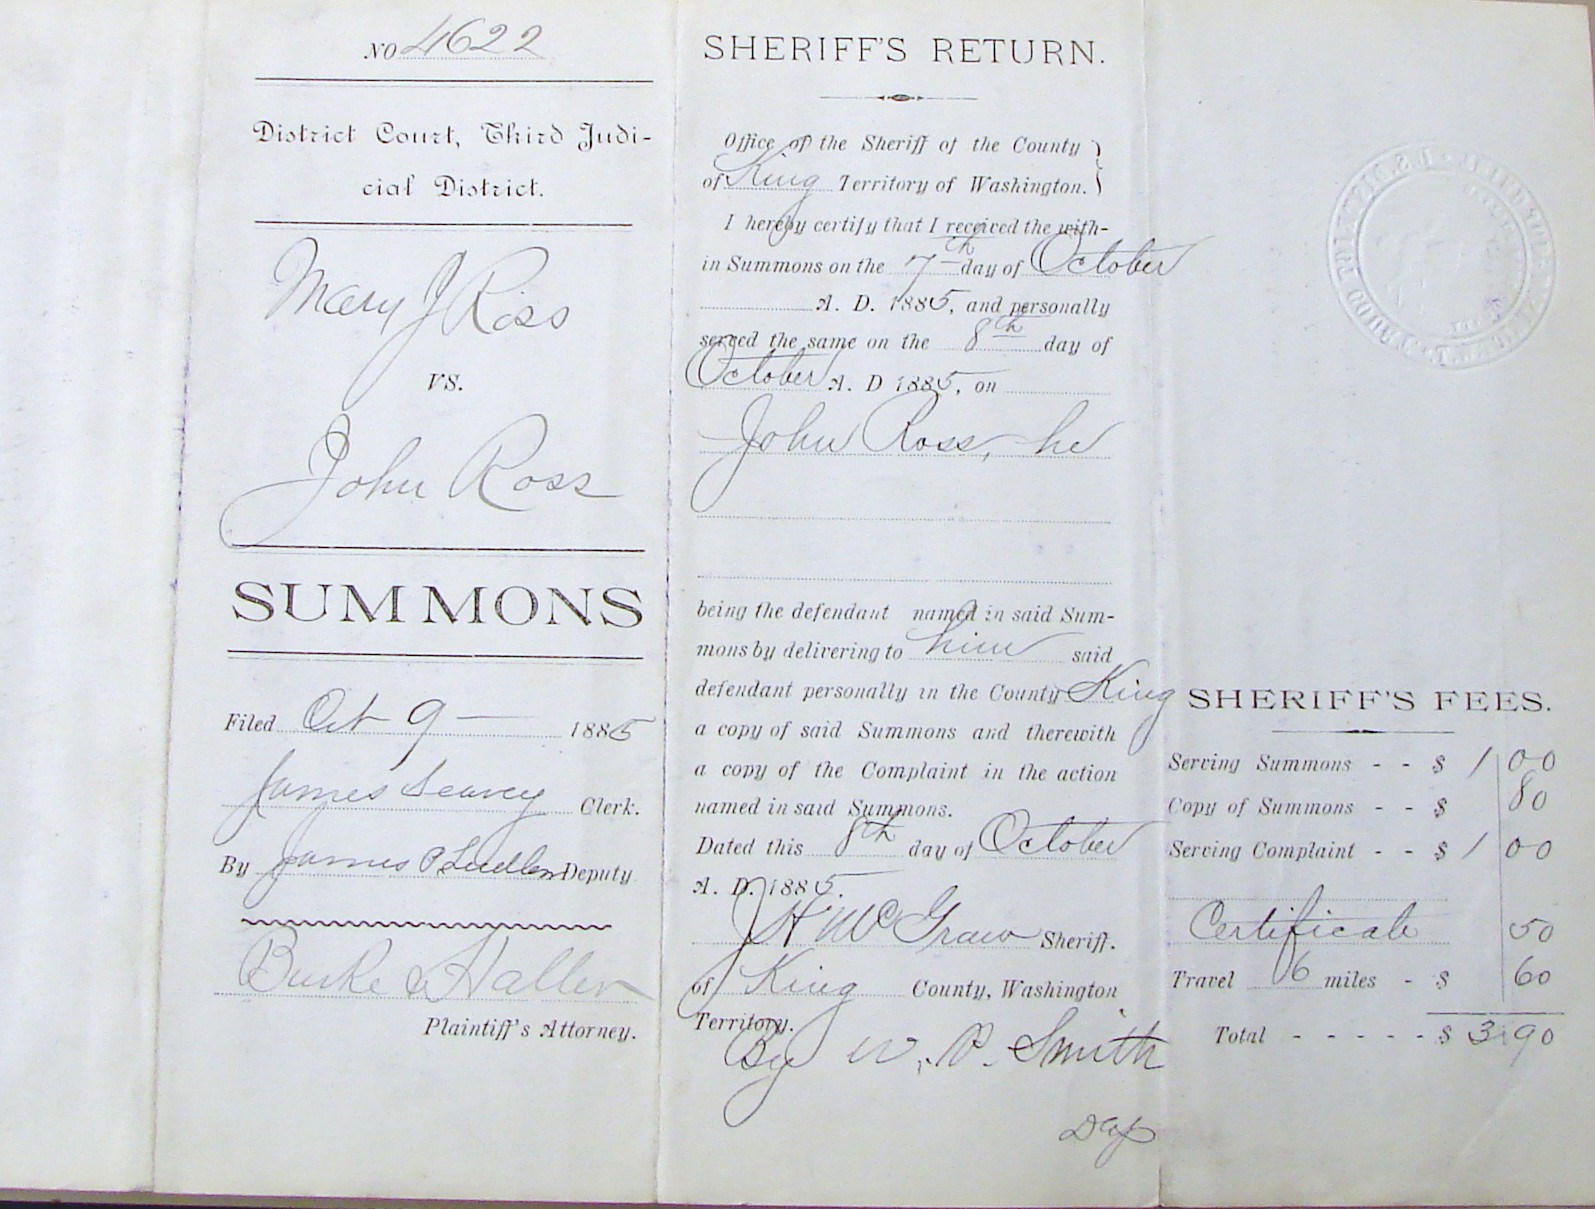 NO 4622
District Court, Third Judi-
cial District.
Mary J Ross
VS.
John Ross
SUMMONS
Filed Oct 9 — 1885
James Seavey Clerk.
By James P Ludlow Deputy
Burke & Haller
Plaintiff's Attorney.
SHERIFF'S RETURN.
Office of the Sheriff of the County }
of King Territory of Washington. }
I hereby certify that I received the with-
in Summons on the 7th day of October
A. D. 1885, and personally
served the same on the 8th day of
October A. D 1885, on
John Ross, he
being the defendant named in said Sum-
mons by delivering to him said
defendant personally in the County King
a copy of said Summons and therewith
a copy of the Complaint in the action
named in said Summons.
Dated this 8th day of October
A. D. 1885.
J H McGraw Sheriff.
of King County, Washington
Territory.
By W. P. Smith
Dep
SHERIFF'S FEES.
Serving Summons - - $ 1 00
Copy of Summons - - $ 80
Serving Complaint - - $ 1 00
Certificate 50
Travel 6 miles - $ 60
Total - - - - - $ 3 90